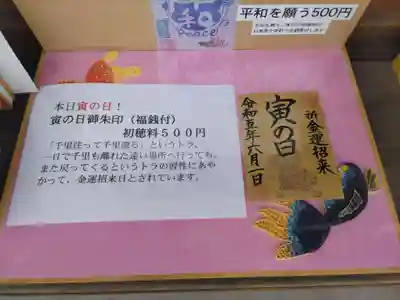 和
Peace
平和を願う500円
本日寅の日！
寅の日御朱印（福銭付）
初穂料５００円
「千里往って千里還る」というトラ、
一日で千里も離れた遠い場所へ行っても、
また戻ってくるというトラの習性にあや
かって、金運招来日とされています。
祈金運招来
寅の日
令和五年六月一日